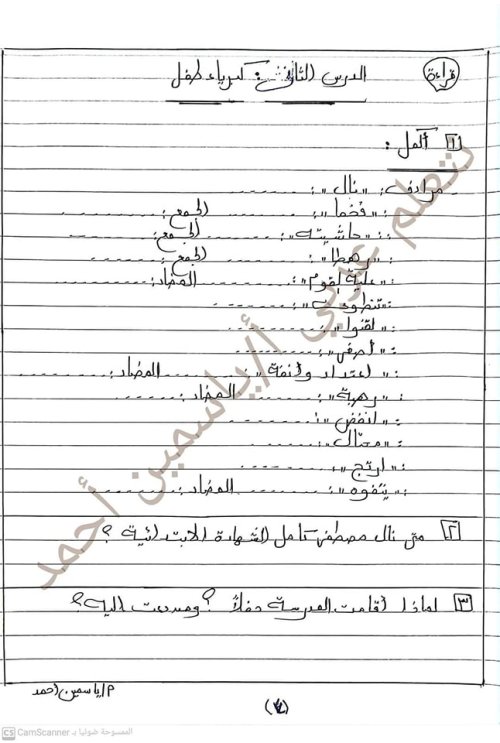 قراءة
الدرس الثاني : كبرياء طفل
١ أكمل :
مرادف : "نال" : ..........
: "فخما" : .......... الجمع : ..........
: "حاشيته" : .......... الجمع : ..........
: "رهطا" : .......... الجمع : ..........
: "علية القوم" : .......... المضاد : ..........
: "تنطوى" : ..........
: "لقنوا" : ..........
: "أصغى" : ..........
: "اعتداد وأنفة" : .......... المضاد : ..........
: "رهبة" : .......... المضاد : ..........
: "انفض" : ..........
: "محتال" : ..........
: "ارتج" : ..........
: "يتفوه" : .......... المضاد : ..........
٢ متى نال مصطفى كامل الشهادة الابتدائية ؟
٣ لماذا أقامت المدرسة حفلاً ؟ ومن دعت إليه ؟
نتعلم عربي أ/ياسمين أحمد
م/ياسمين أحمد
(٧)
CS CamScanner الممسوحة ضوئيا بـ